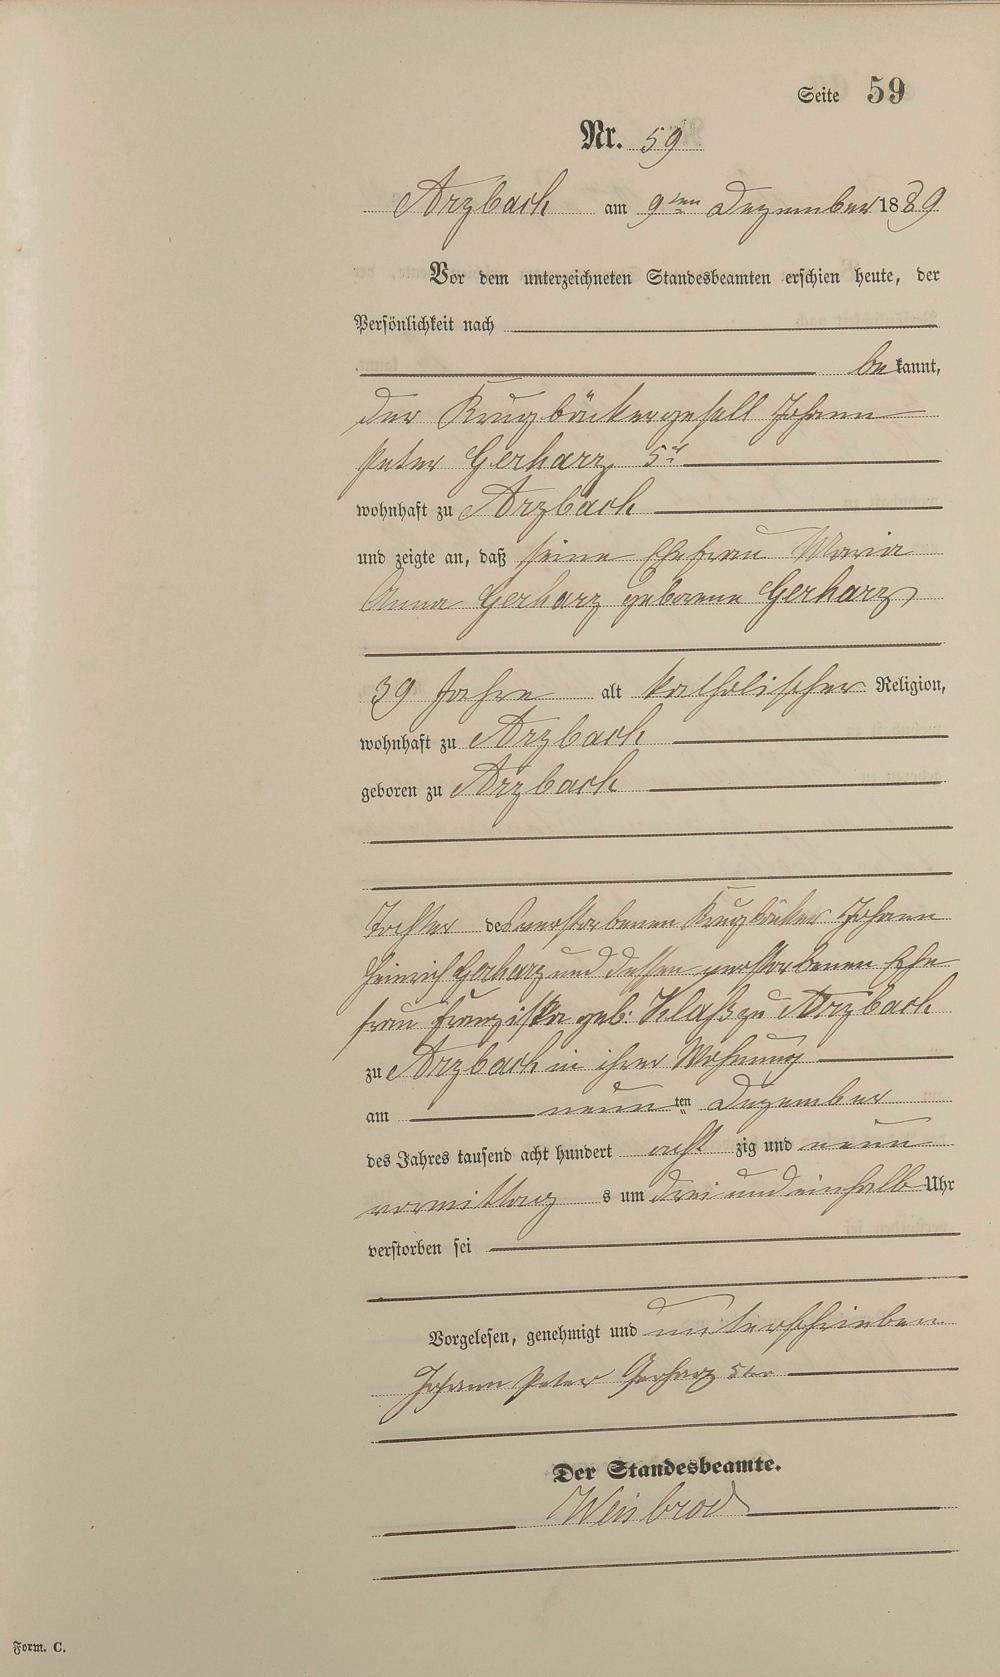 Seite 59
Nr. 59
Arzbach am 9ten Dezember 1889
Vor dem unterzeichneten Standesbeamten erschien heute, der
Persönlichkeit nach
bekannt,
der Krugbäckergesell Johann
Peter Gerharz 5r
wohnhaft zu Arzbach
und zeigte an, daß seine Ehefrau Maria
Anna Gerharz geborene Gerharz
39 Jahre alt katholischer Religion,
wohnhaft zu Arzbach
geboren zu Arzbach
Tochter des verstorbenen Krugbäcker Johann
Heinrich Gerharz und dessen verstorbenen Ehe
frau Franziska geb. Klaß zu Arzbach
zu Arzbach in ihrer Wohnung
am neunten Dezember
des Jahres tausend acht hundert acht zig und neun
vormittag s um drei und einhalb Uhr
verstorben sei
Vorgelesen, genehmigt und unterschrieben
Johann Peter Gerharz 5ter
Der Standesbeamte.
Weisbrod
Form. C.